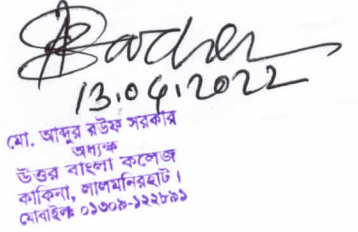 Sarcher
13.04.2022
মো. আব্দুর রউফ সরকার
অধ্যক্ষ
উত্তর বাংলা কলেজ
কাকিনা, লালমনিরহাট।
মোবাইলঃ ০১৩০৯-১২২৮৯১